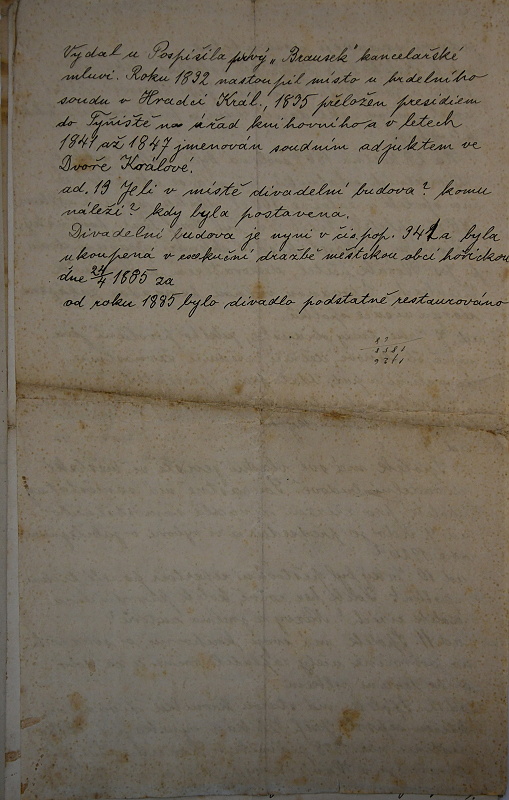 Vydal u Pospíšila prvý „Brausek" kancelářské
mluvi. Roku 1832 nastoupil místo u hrdelního
soudu v Hradci Král., 1835 přeložen presidiem
do Týniště na úřad knihovního a v letech
1841 až 1847 jmenován soudním adjuktem ve
Dvoře Králové.
ad. 19 Jeli v místě divadelní budova? komu
náleží? kdy byla postavena.
Divadelní budova je nyní v čís pop. 341 a byla
ukoupena v exekuční dražbě městskou obcí hořickou
dne 24/4 1885 za
od roku 1885 bylo divadlo podstatně restaurováno